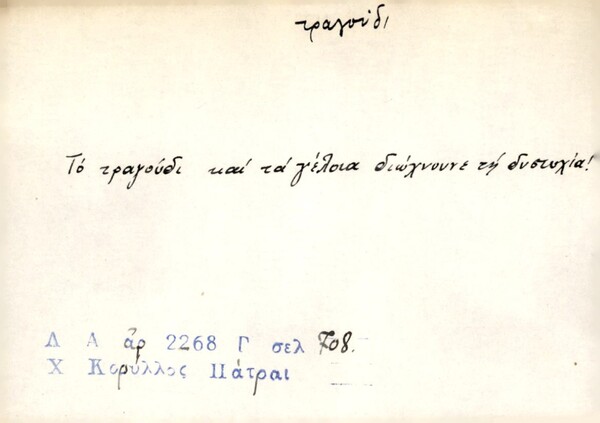 τραγούδι
Τό τραγούδι καί τά γέλοια διώχνουνε τή δυστυχία!
Λ Α ἀρ 2268 Γ σελ 708.
Χ Κορύλλος Πάτραι